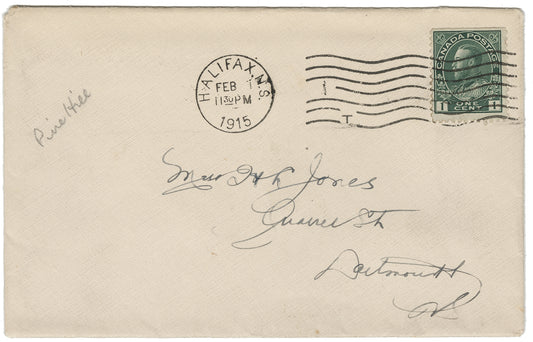 HALIFAX, N.S.
FEB 1
11 30 PM
1915
T
CANADA POSTAGE
1 ONE CENT 1
Pine Hill
Jones
St
Dartmouth
NS